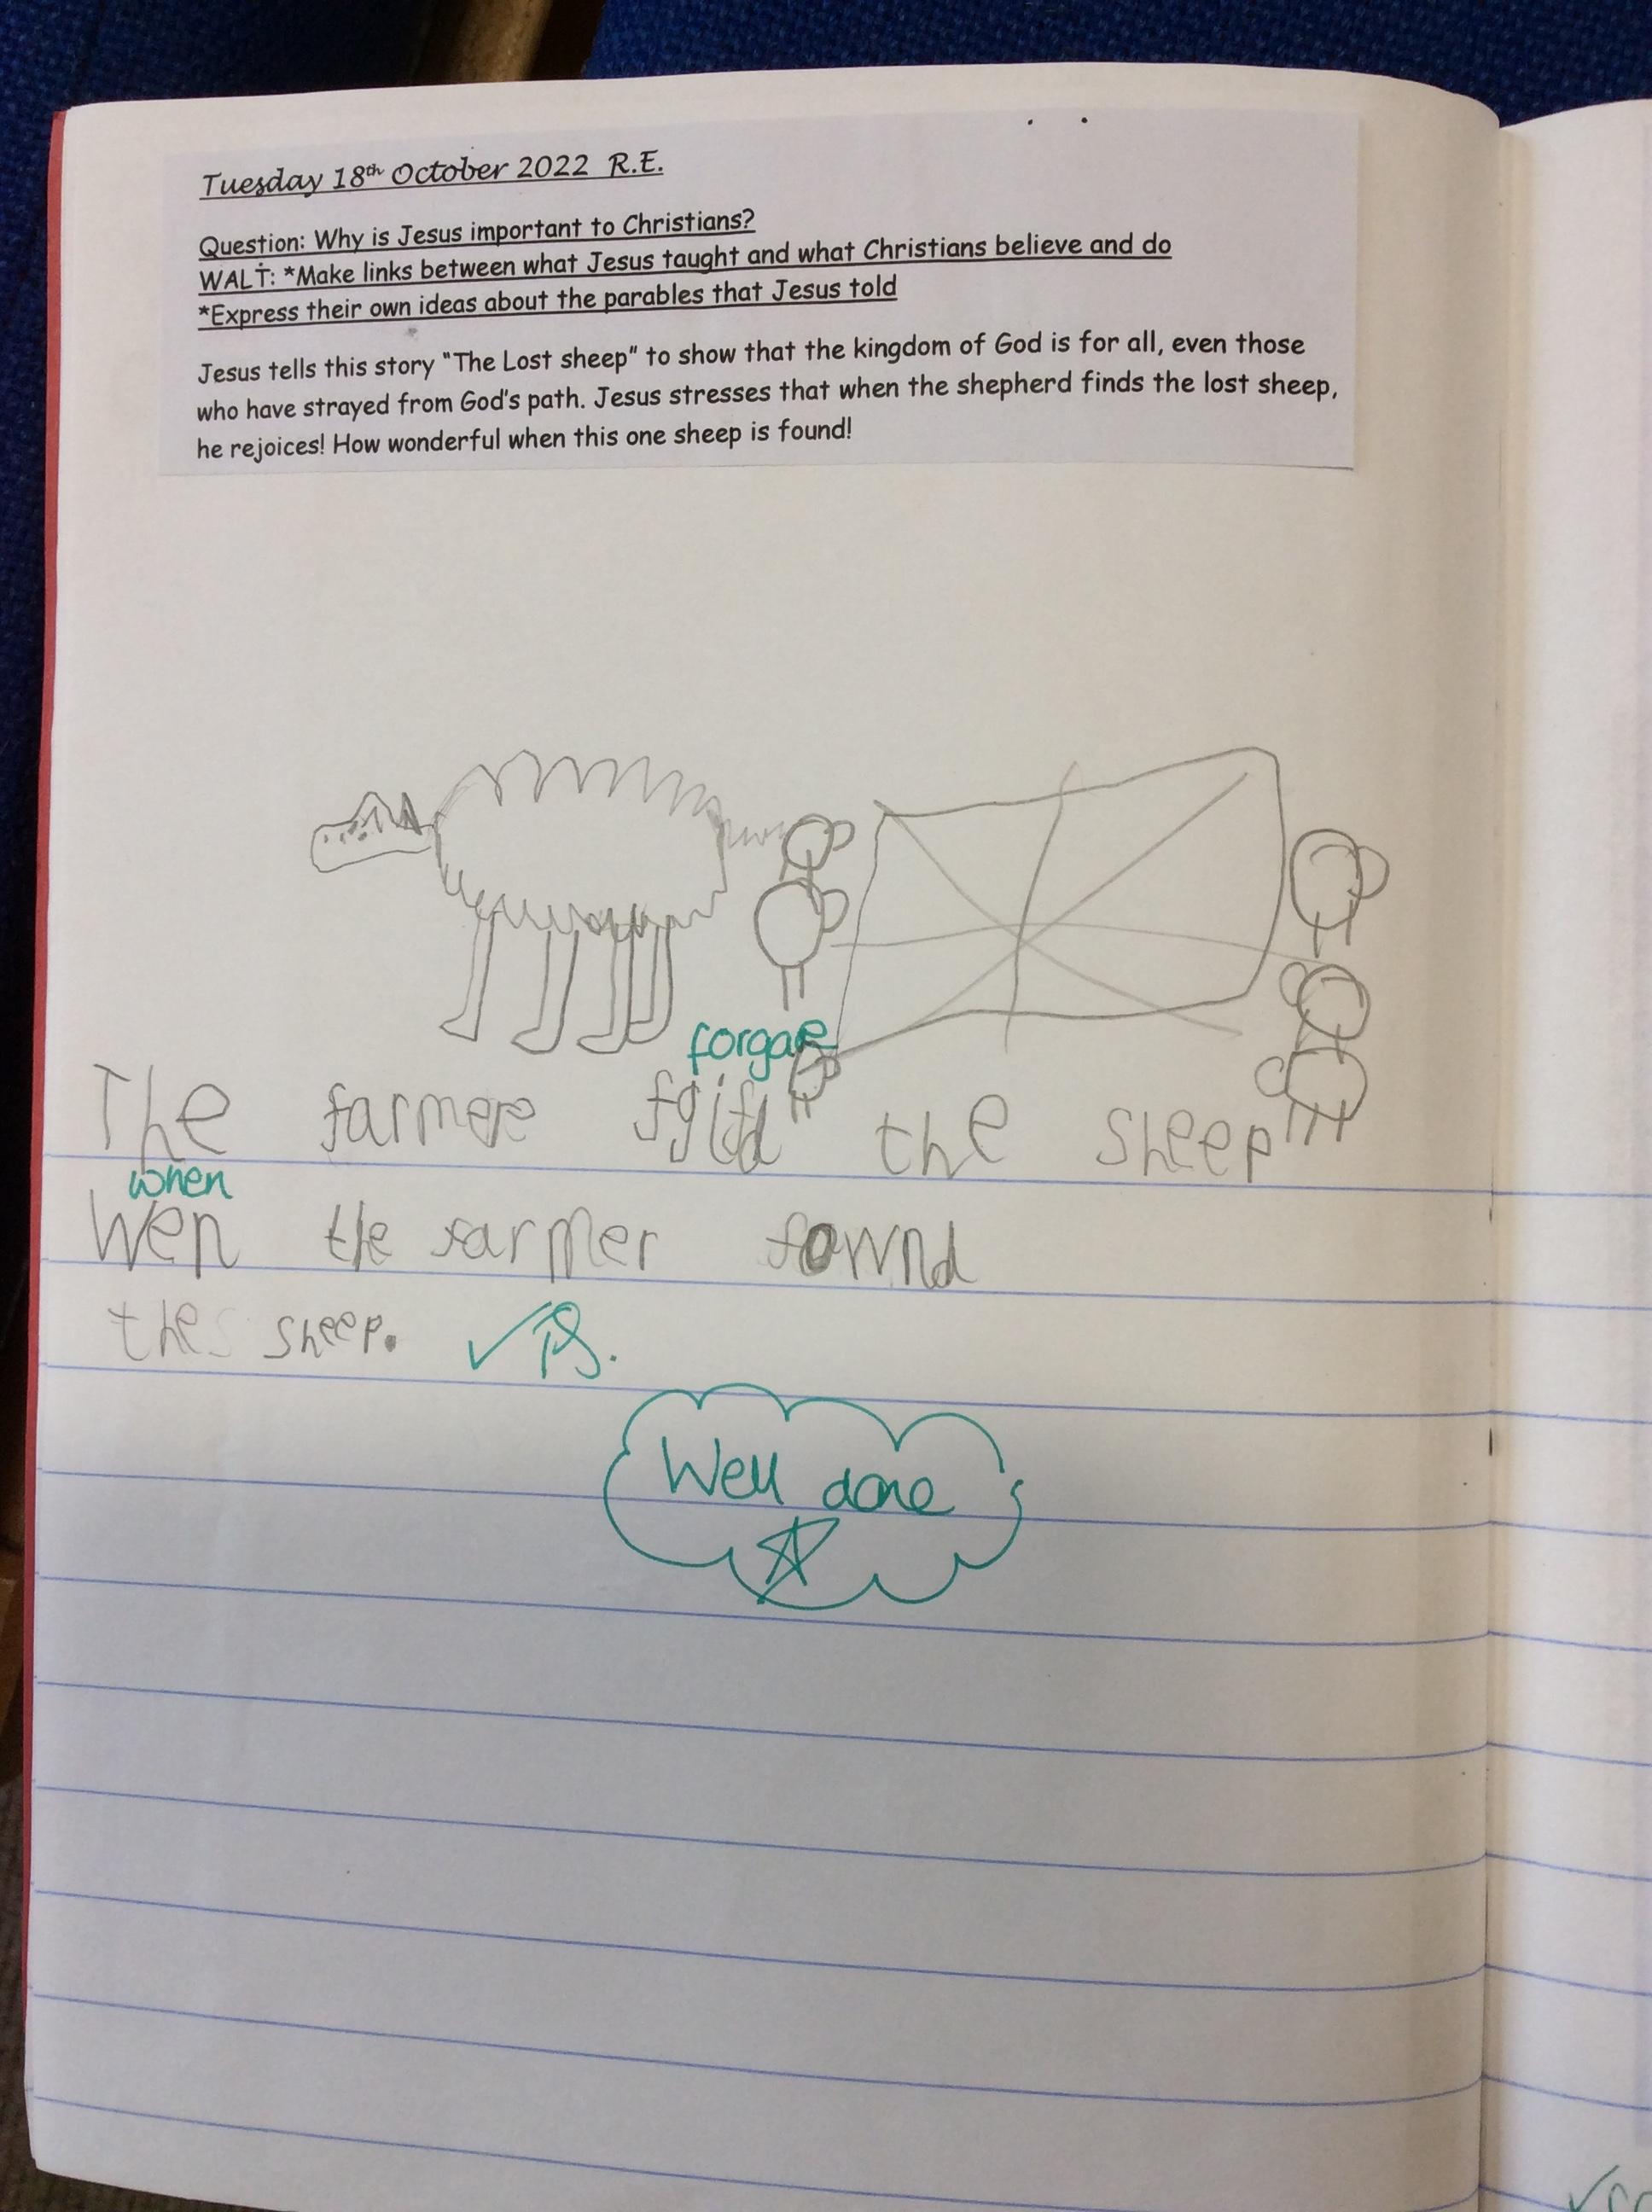 Tuesday 18th October 2022 R.E.
Question: Why is Jesus important to Christians?
WALT: *Make links between what Jesus taught and what Christians believe and do
*Express their own ideas about the parables that Jesus told
Jesus tells this story "The Lost sheep" to show that the kingdom of God is for all, even those
who have strayed from God's path. Jesus stresses that when the shepherd finds the lost sheep,
he rejoices! How wonderful when this one sheep is found!
forgave
The farmere the sheep
when
Wen the farmer fownd
the sheep.
Well done